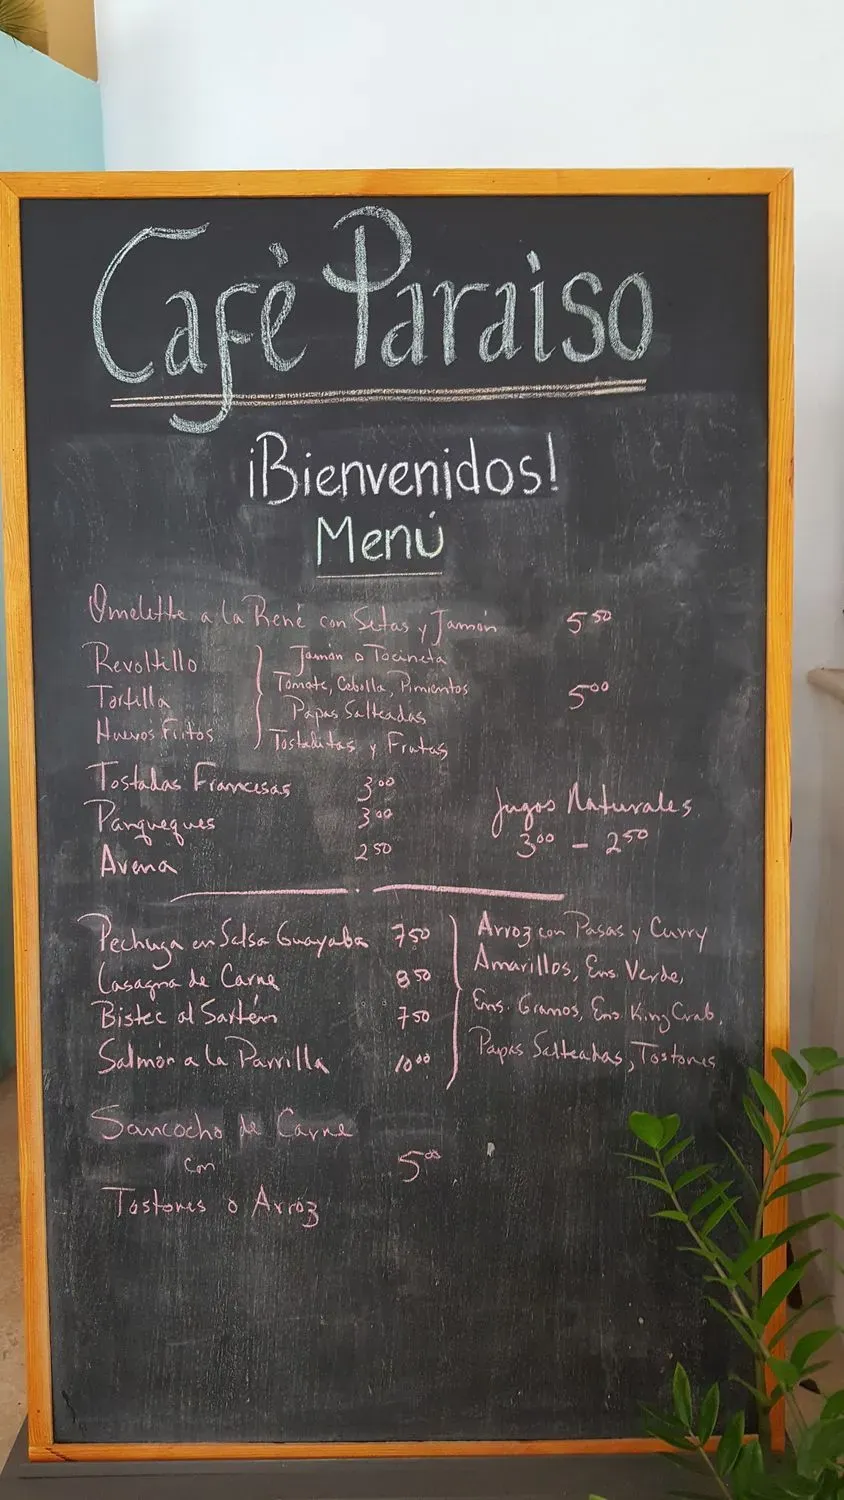 Cafè Paraiso
¡Bienvenidos!
Menú
Omelette a la René con Setas y Jamón 5 50
Revoltillo
Tortilla
Huevos Fritos
Jamón o Tocineta
Tomate, Cebolla, Pimientos
Papas Salteadas
Tostaditas y Frutas
5 00
Tostadas Francesas 3 00
Panqueques 3 00
Avena 2 50
Jugos Naturales
3 00 - 2 50
Pechuga en Salsa Guayaba 7 50
Lasagna de Carne 8 50
Bistec al Sartén 7 50
Salmón a la Parrilla 10 00
Arroz con Pasas y Curry
Amarillos, Ens Verde,
Ens. Granos, Ens King Crab
Papas Salteadas, Tostones
Sancocho de Carne
con 5 00
Tostones o Arroz